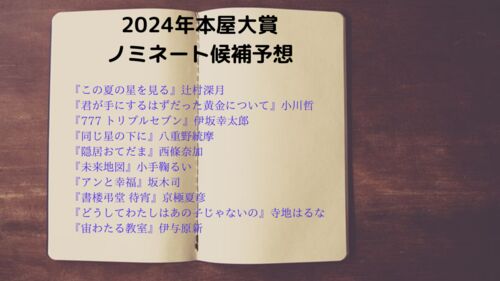 2024年本屋大賞
ノミネート候補予想
『この夏の星を見る』辻村深月
『君が手にするはずだった黄金について』小川哲
『777 トリプルセブン』伊坂幸太郎
『同じ星の下に』八重野統摩
『隠居おてだま』西條奈加
『未来地図』小手鞠るい
『アンと幸福』坂木司
『書楼弔堂 待宵』京極夏彦
『どうしてわたしはあの子じゃないの』寺地はるな
『宙わたる教室』伊与原新